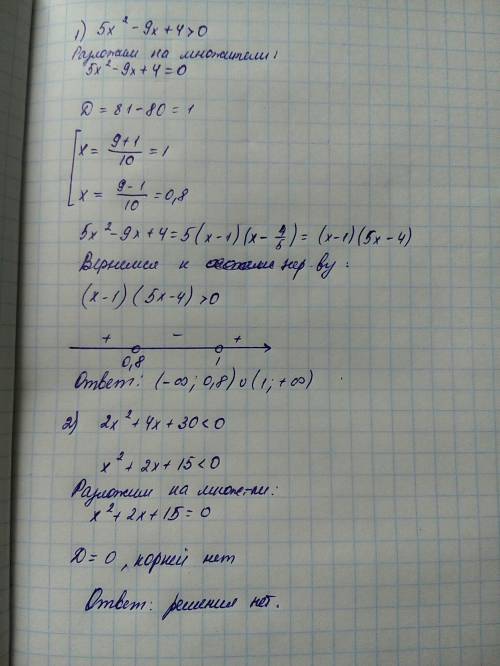 1) 5x² - 9x + 4 > 0
Разложим на множители:
5x² - 9x + 4 = 0
D = 81 - 80 = 1
x = (9+1)/10 = 1
x = (9-1)/10 = 0,8
5x² - 9x + 4 = 5(x-1)(x - 4/5) = (x-1)(5x-4)
Вернемся к нер-ву:
(x-1)(5x-4) > 0
+ - +
0,8 1
Ответ: (-∞; 0,8) ∪ (1; +∞)
2) 2x² + 4x + 30 < 0
x² + 2x + 15 < 0
Разложим на множ-ли:
x² + 2x + 15 = 0
D = 0, корней нет
Ответ: решения нет.